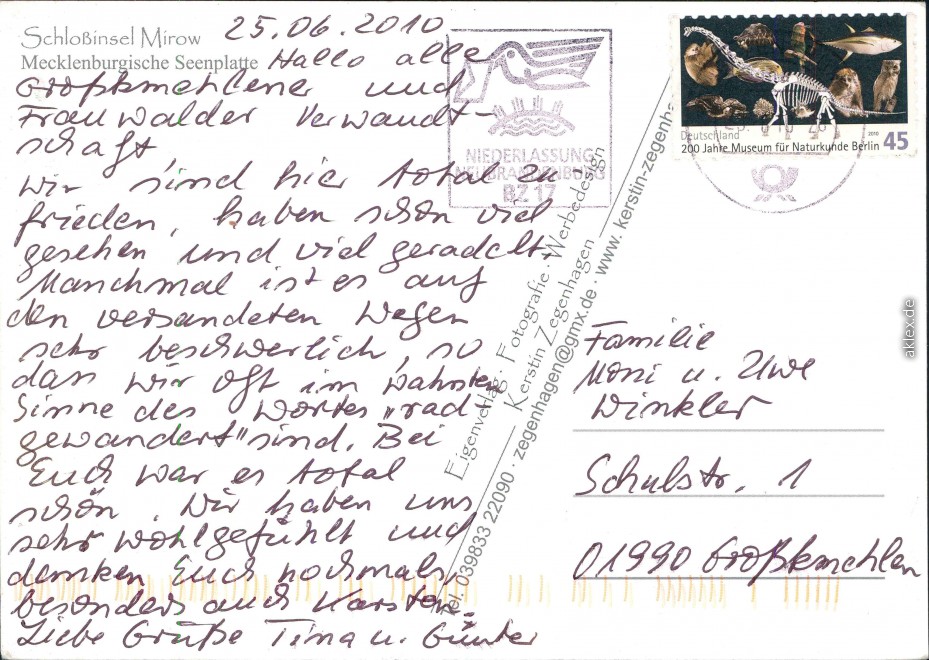 Schloßinsel Mirow
Mecklenburgische Seenplatte
25.06.2010
Hallo alle
Großkmehlener und
Frauwalder Verwandt-
schaft
Wir sind hier total zu
frieden, haben schon viel
gesehen und viel geradelt.
Manchmal ist es auf
den versandeten Wegen
sehr beschwerlich, so
dass wir oft im wahrsten
Sinne des Wortes „rad-
gewandert" sind. Bei
Euch war es total
schön. Wir haben uns
sehr wohlgefühlt und
danken Euch nochmals,
besonders auch Karsten.
Liebe Grüße Tina u. Günter
NIEDERLASSUNG
NEUBRANDENBURG
BZ 17
Deutschland
2010
200 Jahre Museum für Naturkunde Berlin 45
Eigenverlag · Fotografie · Werbedesign
Kerstin Zegenhagen
Tel. 039833 22090 · zegenhagen@gmx.de · www.kerstin-zegenha
Familie
Moni u. Uwe
Winkler
Schulstr. 1
01990 Großkmehlen
aklex.de